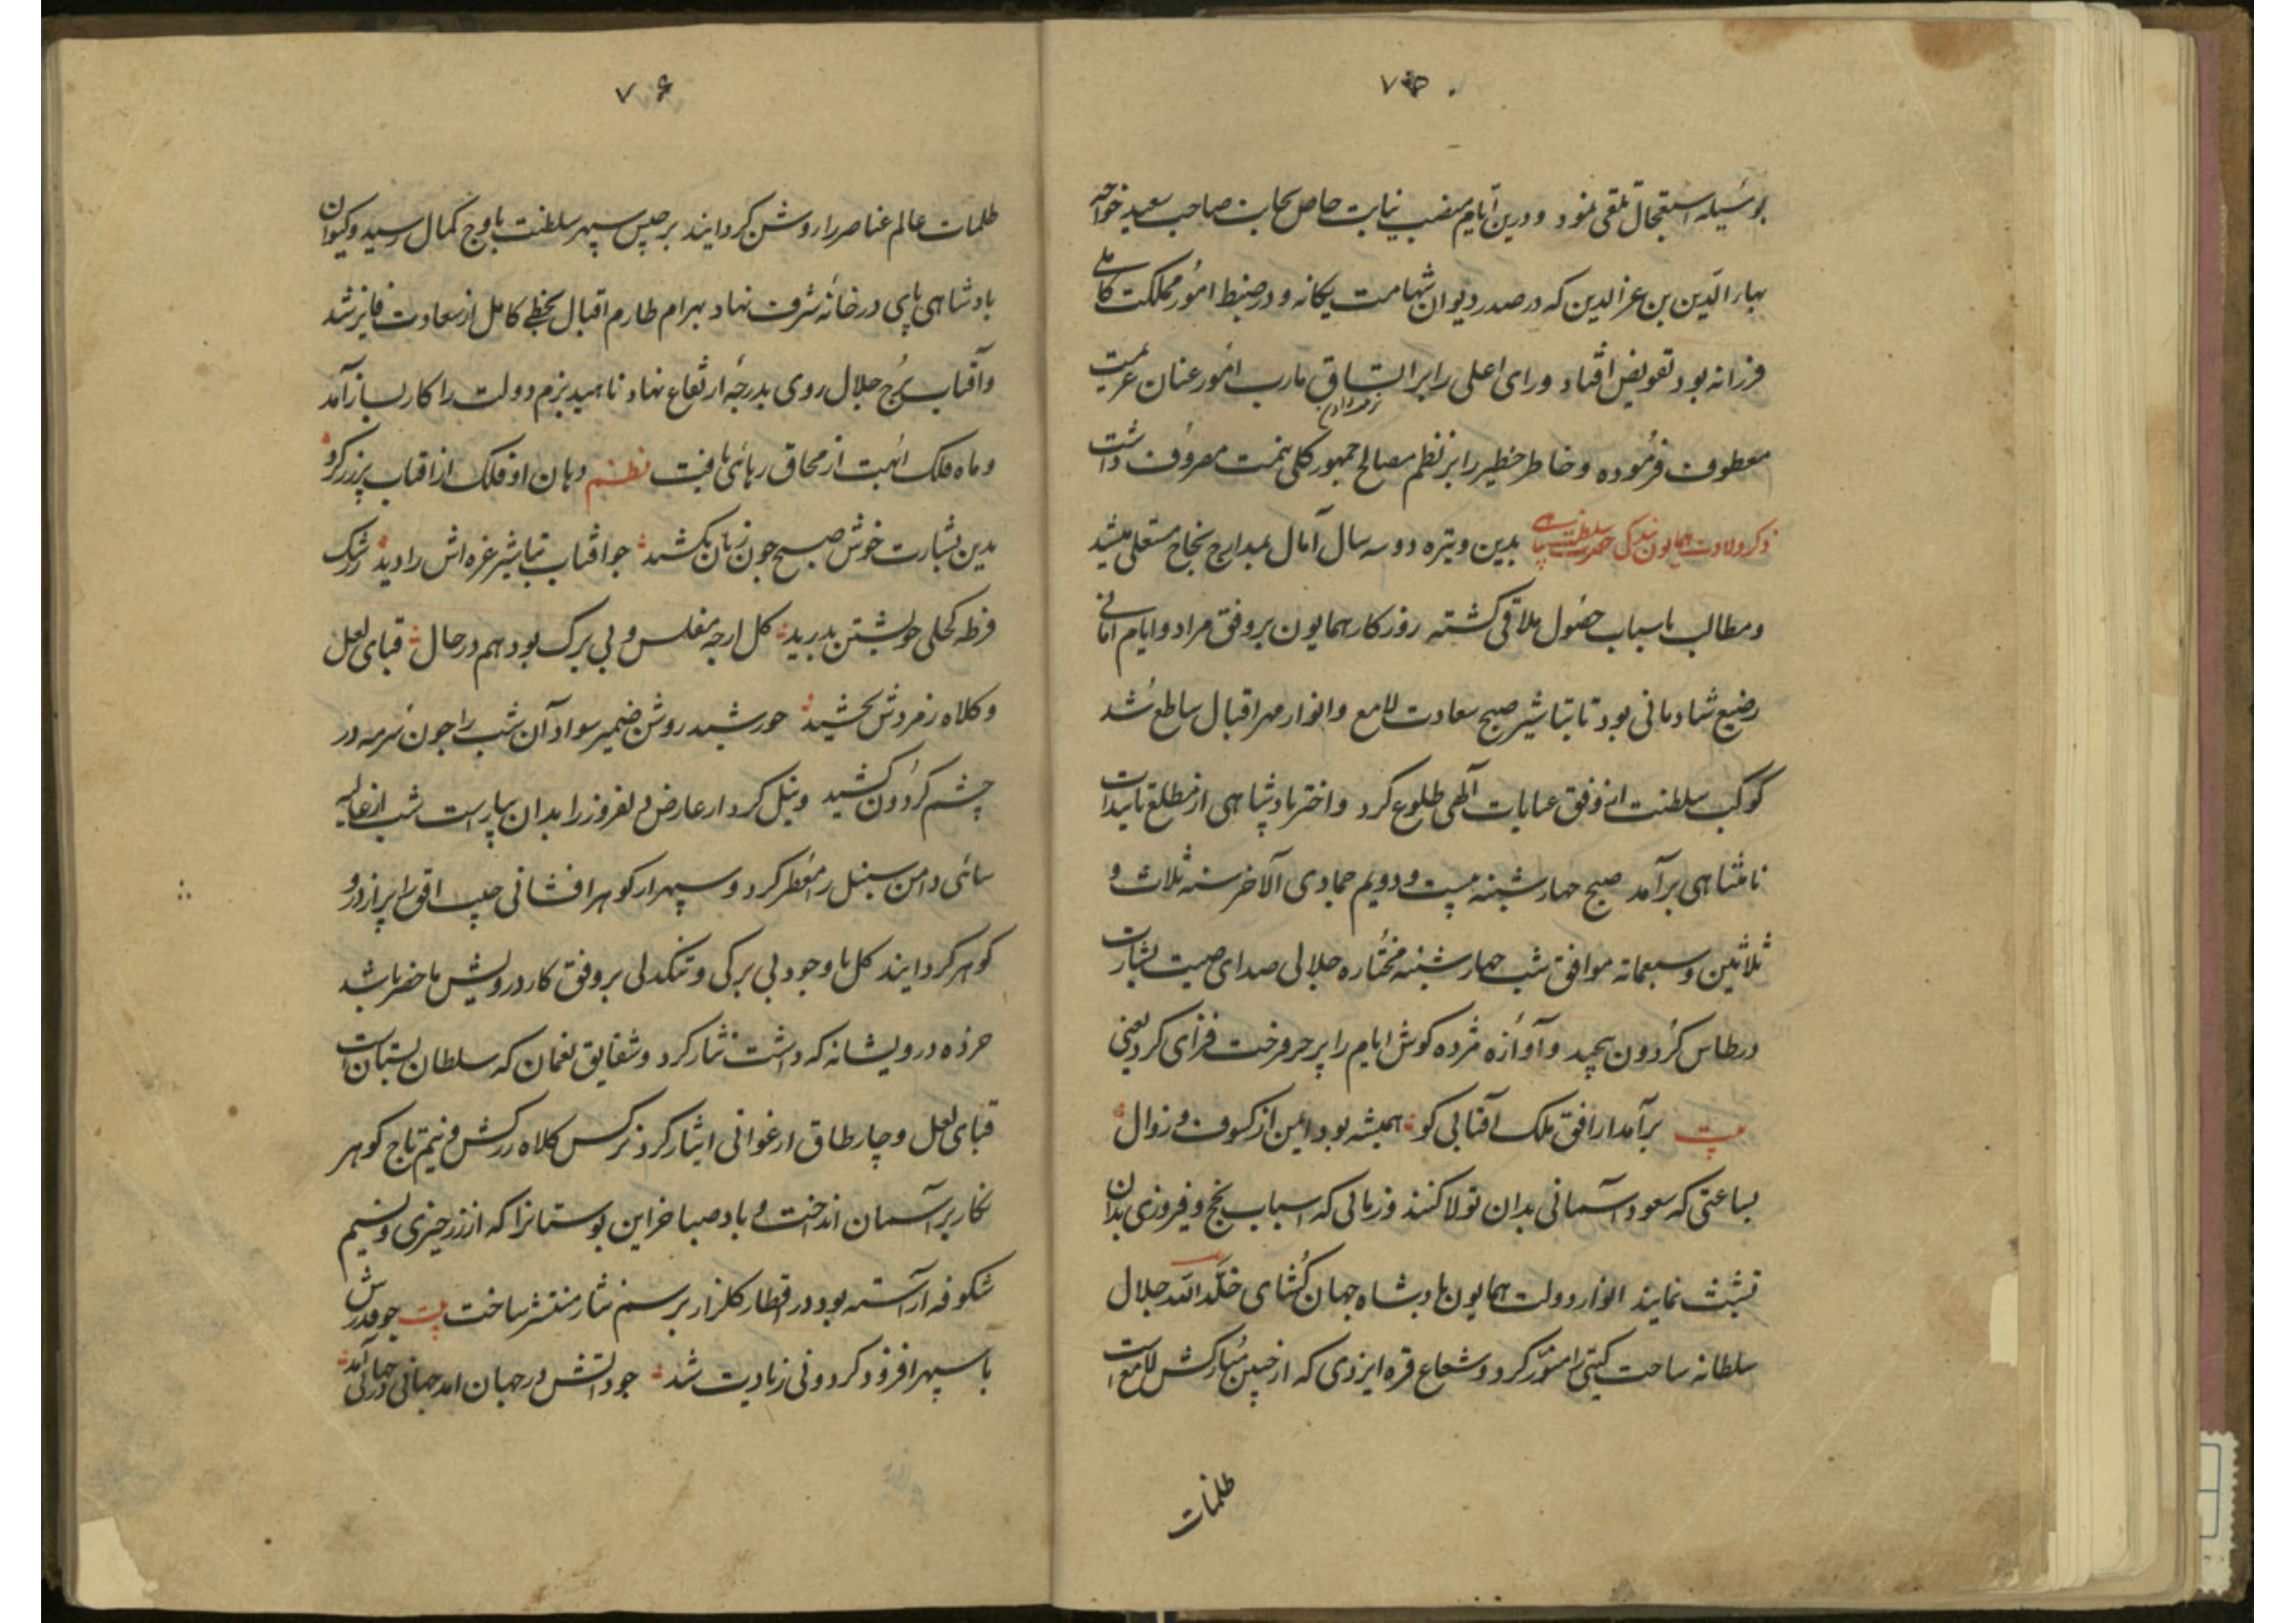 ۷۵
بوسیله استعجال تلقی نمود و درین ایام منصب نیابت خاص بجناب صاحب سعید خواجه
بهاء الدین بن عز الدین که در صدر دیوان شهامت یکانه و در ضبط امور مملکت کاملی
فرزانه بود تفویض افتاد و رای اعلی را بر اتساق مارب امور عنان عزیمت
معطوف فرموده و خاطر خطیر را بر نظم مصالح جمهور کلی همت مصروف داشت
ذکر ولادت همایون بندکی حضرت سلطنت پناهی بدین وتیره دو سه سال آمال بمدارج نجاح مستعلی میشد
و مطالب باسباب حصول ملاقی کشته روزکار همایون بر وفق مراد و ایام امانی
رضیع شادمانی بود تا تباشیر صبح سعادت لامع و انوار مهر اقبال ساطع شد
کوکب سلطنت از افق عنایات آلهی طلوع کرد و اختر پادشاهی از مطلع تاییدات
نامتناهی برآمد صبح چهارشنبه بیست و دویم جمادی الآخر سنه ثلاث و
ثلاثین و سبعمائه موافق شب چهارشنبه مختاره جلالی صدای صیت بشارت
در طاس کردون پیچید و آوازه مژده کوش ایام را پر در فرحت فزای کرد یعنی
بیت برآمد از افق ملک آفتابی کو همیشه بود ایمن از کسوف و زوال
بساعتی که سعود آسمانی بدان تولا کنند و زمانی که اسباب نجح و فیروزی بدان
تشبث نمایند انوار دولت همایون پادشاه جهان کشای خلد الله جلال
سلطانه ساحت کیتی را منور کرد و شعاع فره ایزدی که از جبین مبارکش لامع است
ظلمات
۷۶
ظلمات عالم عناصر را روشن کردانید برجیس سپهر سلطنت باوج کمال رسید و کیوان
بادشاهی پای در خانه شرف نهاد بهرام طارم اقبال بحظی کامل از سعادت فایز شد
و آفتاب برج جلال روی بدرجه ارتفاع نهاد ناهید بزم دولت را کار بساز آمد
و ماه فلک ابهت از محاق رهائی یافت نظم دهان او فلک از افتاب پر زر کرد
بدین بشارت خوش صبح چون زبان بکشید جو افتاب تباشیر غره اش را دید ز رشک
فرطه کحلی خویشتن بدرید کل ارچه مفلس و بی برک بود هم در حال قبای لعل
و کلاه زمردش بخشید خورشید روشن ضمیر سواد آن شب را جون سرمه در
چشم کردون کشید و نیل کردار عارض دلفروز را بدان بیاراست شب از غالیه
سائی دامن سنبل را معطر کرد و سپهر از کوهر افشانی جیب افق را پر از در و
کوهر کردانید کل با وجود بی برکی و تنکدلی بر وفق کار درویش ما حضر باشد
خرده درویشانه که داشت نثار کرد و شقایق نعمان که سلطان بستان است
قبای لعل و چارطاق ارغوانی ایثار کرد نرکس کلاه زرکش و نیم تاج کوهر
نکار بر آسمان انداخت و باد صبا خزاین بوستانرا که از زر خیزی و نسیم
شکوفه آراسته بود در اقطار کلزار برسم نثار منتشر ساخت بیت جو قدرش
با سپهر افزود کردونی زیادت شد جو ذاتش در جهان امد جهانی در جهان آمد